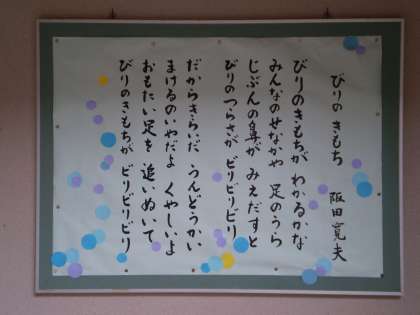 びりの きもち 阪田寛夫
びりのきもちが わかるかな
みんなのせなかや 足のうら
じぶんの鼻が みえだすと
びりのつらさが ビリビリビリ
だからきらいだ うんどうかい
まけるのいやだよ くやしいよ
おもたい足を 追いぬいて
びりのきもちが ビリビリビリ